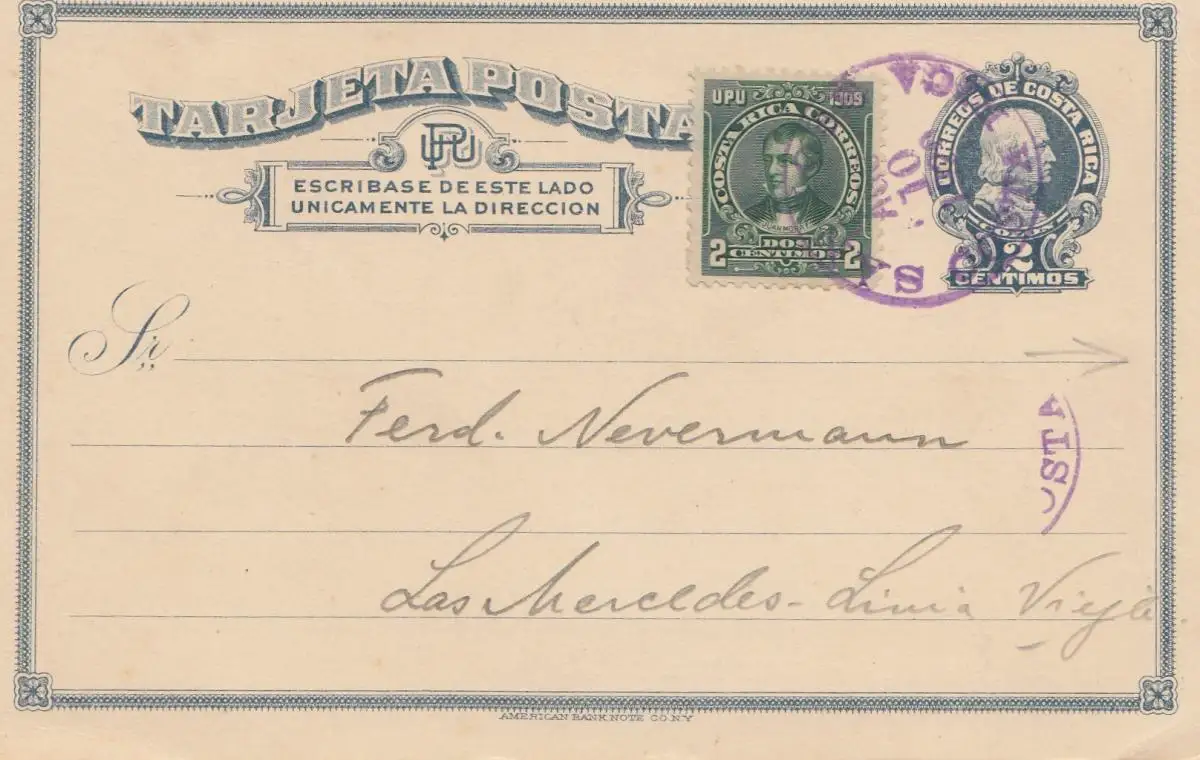 TARJETA POSTA
UPU
ESCRIBASE DE ESTE LADO
UNICAMENTE LA DIRECCION
UPU 1909
COSTA RICA CORREOS
2 DOS CENTIMOS 2
CORREOS DE COSTA RICA
COLON
2
CENTIMOS
Sr
Ferd. Nevermann
OSTA
Las Mercedes - Linia Vieja
AMERICAN BANK NOTE CO. N.Y